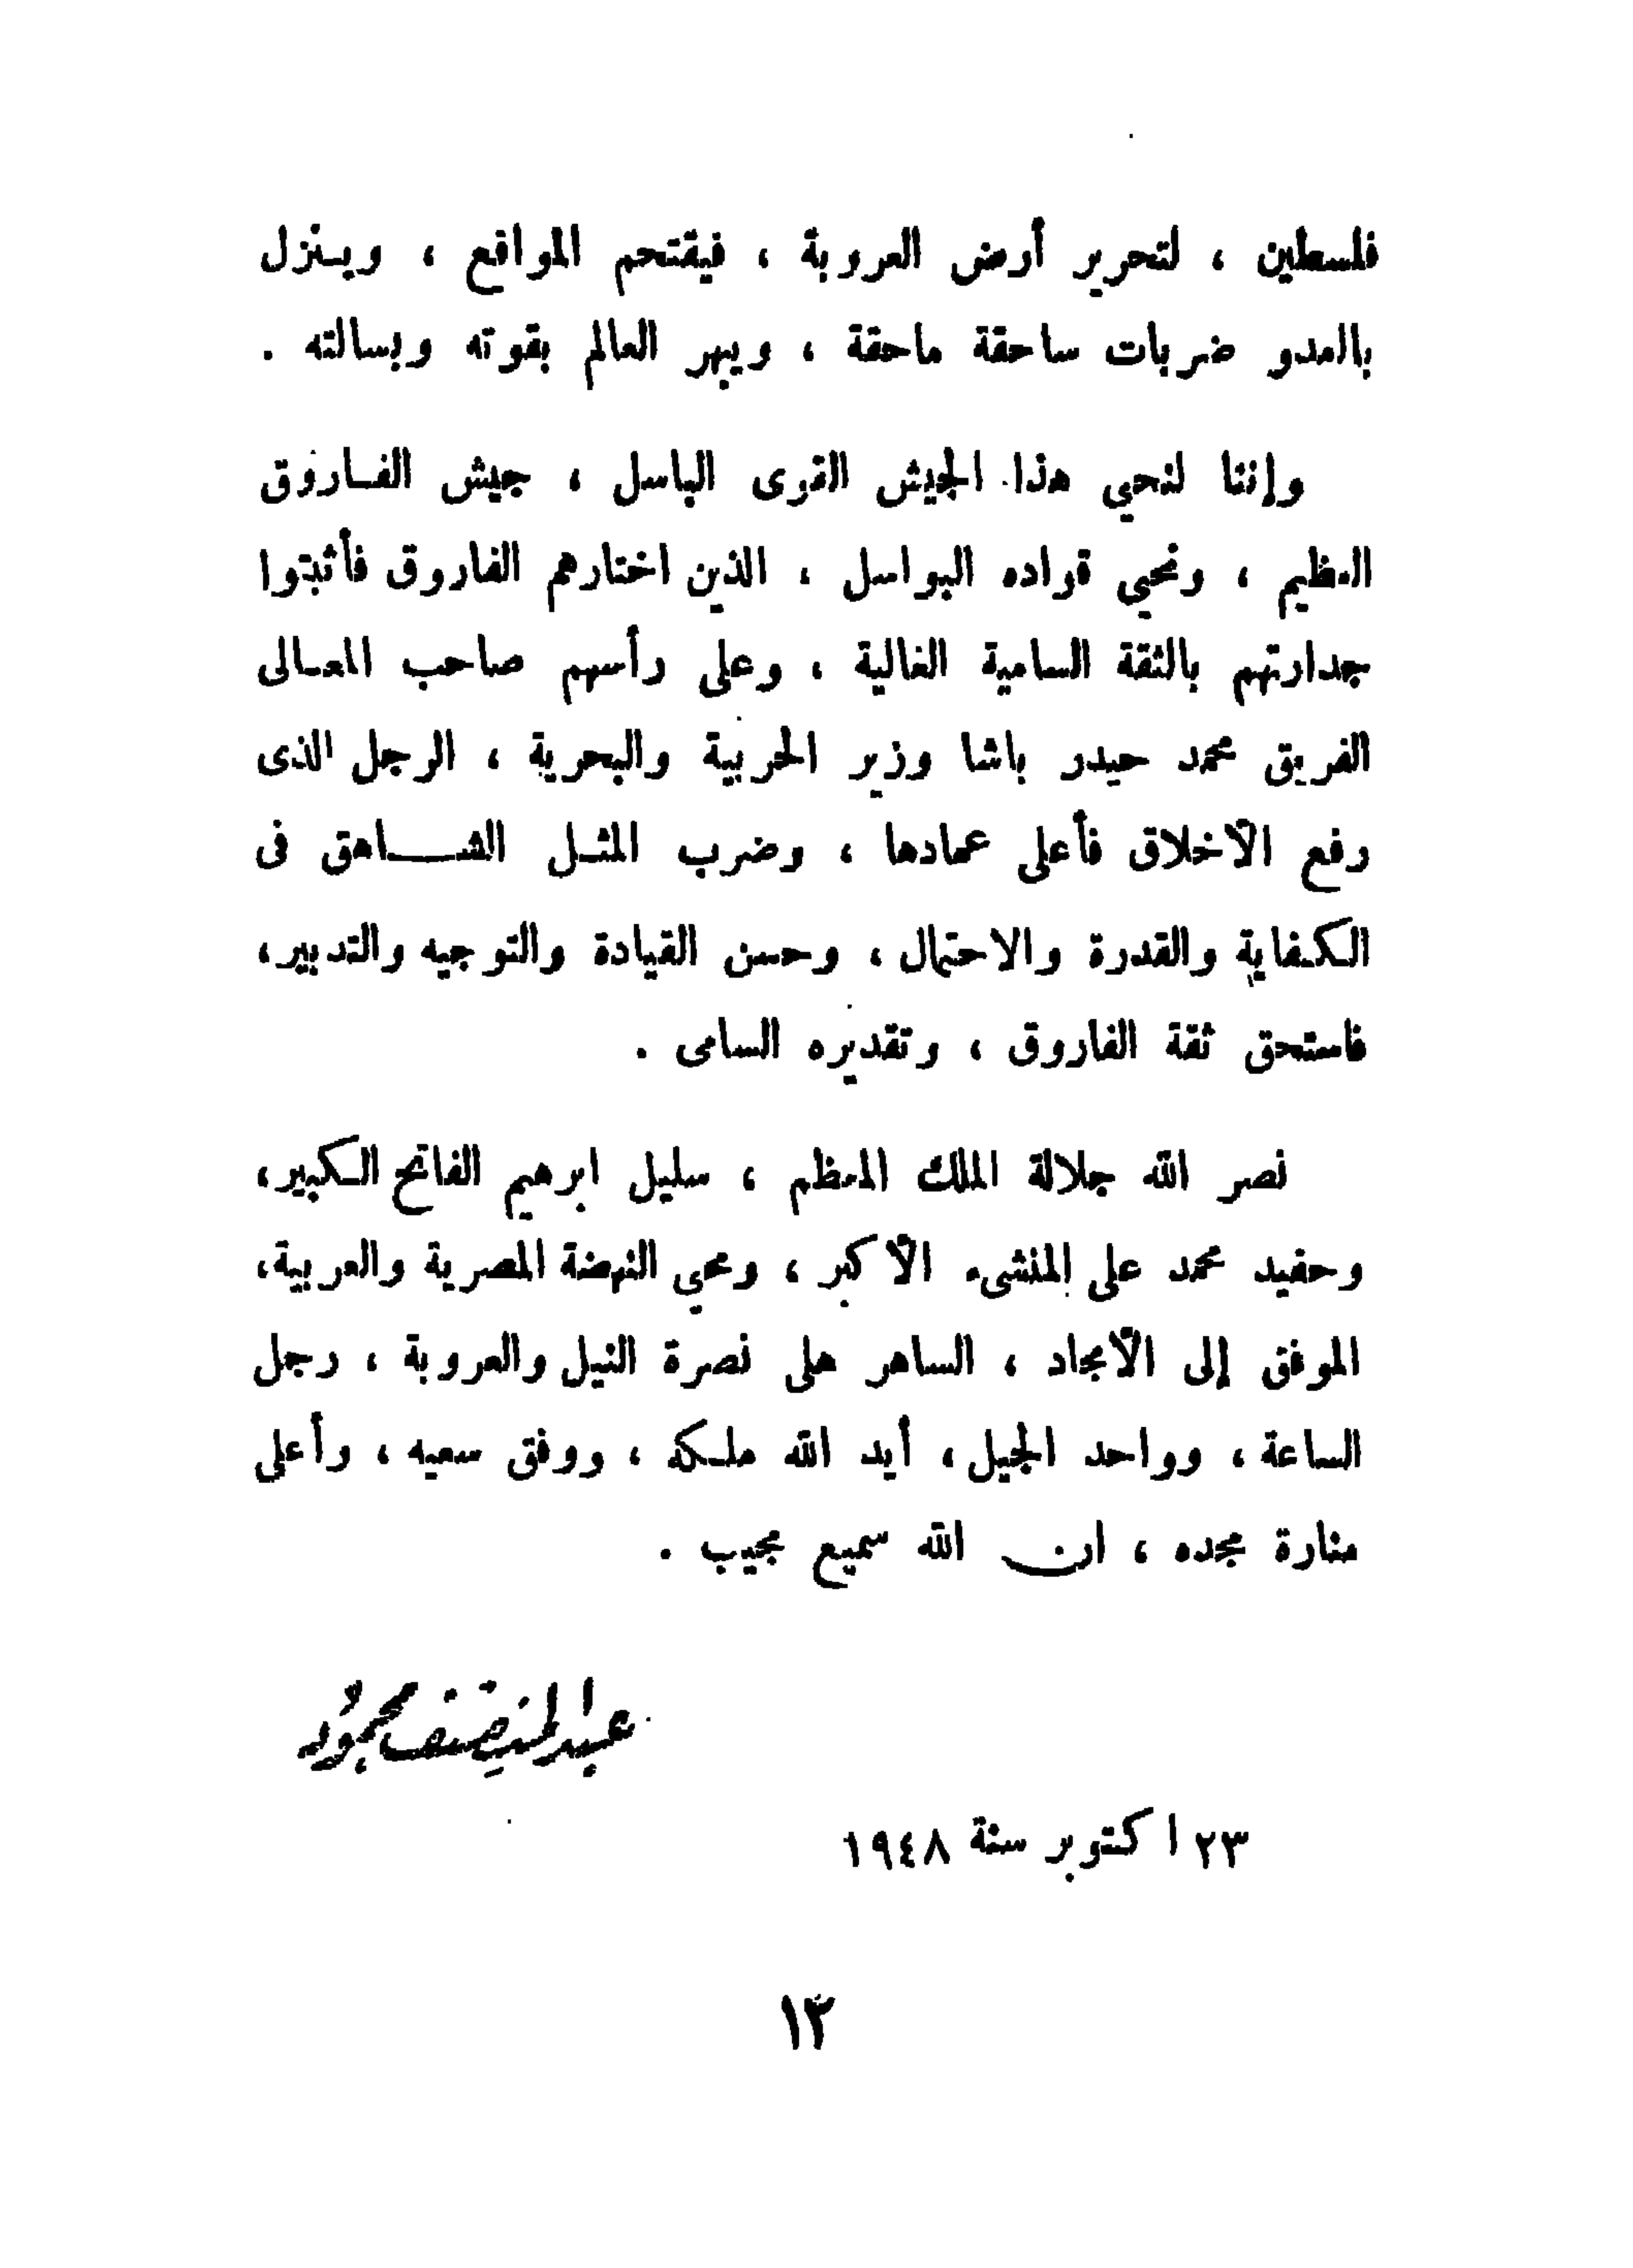 فلسطين ، لتحرير أرض العروبة ، فيقتحم المواقع ، وينزل
بالعدو ضربات ساحقة ماحقة ، ويبهر العالم بقوته وبسالته .
وإننا لنحيي هذا الجيش القوى الباسل ، جيش الفاروق
العظيم ، ونحيي قواده البواسل ، الذين اختارهم الفاروق فأثبتوا
جدارتهم بالثقة السامية الغالية ، وعلى رأسهم صاحب المعالى
الفريق محمد حيدر باشا وزير الحربية والبحرية ، الرجل الذى
رفع الأخلاق فأعلى عمادها ، وضرب المثل الشاهق فى
الكفاية والقدرة والاحتمال ، وحسن القيادة والتوجيه والتدبير،
فاستحق ثقة الفاروق ، وتقديره السامى .
نصر الله جلالة الملك المعظم ، سليل ابرهيم الفاتح الكبير،
وحفيد محمد على المنشىء الأكبر ، ومحيي النهضة المصرية والعربية،
الموفق إلى الأمجاد ، الساهر على نصرة النيل والعروبة ، رجل
الساعة ، وواحد الجيل ، أيد الله ملكه ، ووفق سعيه ، وأعلى
منارة مجده ، ان الله سميع مجيب .
عبد المنصف محمود
٢٣ اكتوبر سنة ١٩٤٨
١٣